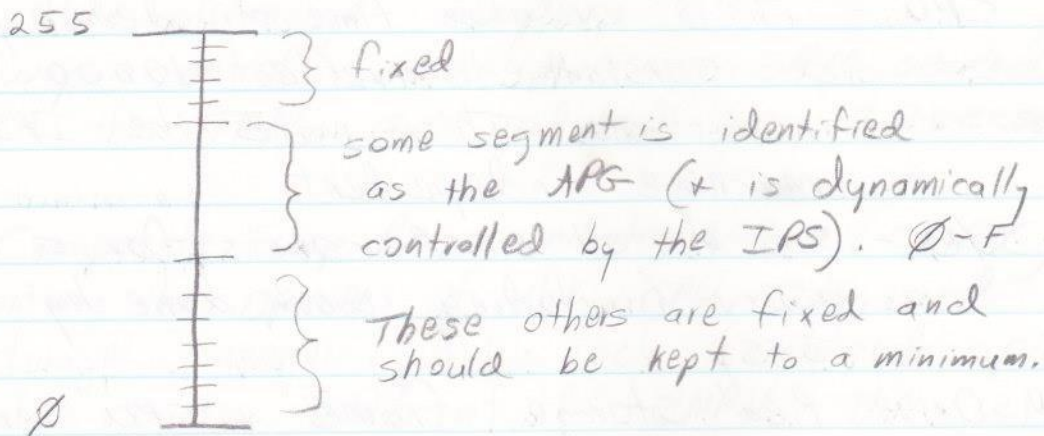 255
fixed
some segment is identified
as the APG (+ is dynamically
controlled by the IPS). Ø-F
These others are fixed and
should be kept to a minimum.
Ø